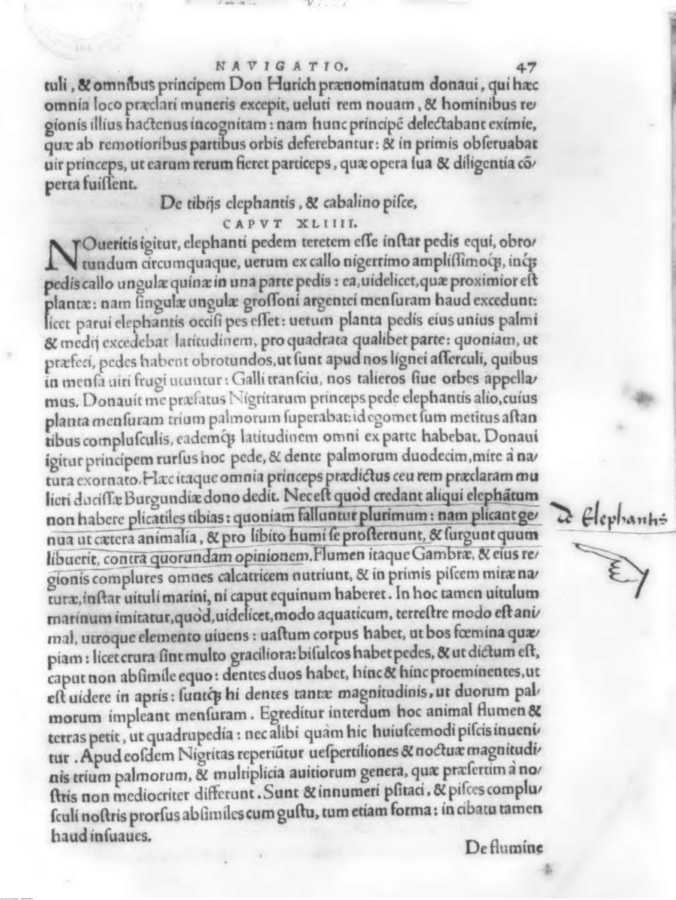 NAVIGATIO. 47
tuli, & omnibus principem Don Hurich prænominatum donaui, qui hæc
omnia loco præclari muneris excepit, ueluti rem nouam, & hominibus re/
gionis illius hactenus incognitam: nam hunc principẽ delectabant eximie,
quæ ab remotioribus partibus orbis deferebantur: & in primis obseruabat
uir princeps, ut earum rerum fieret particeps, quæ opera sua & diligentia cõ/
perta fuissent.
De tibijs elephantis, & cabalino pisce,
CAPVT XLIIII.
NOueritis igitur, elephanti pedem teretem esse instar pedis equi, obro/
tundum circumquaque, uerum ex callo nigerrimo amplissimoq́;, inq́;
pedis callo ungulæ quinæ in una parte pedis: ea, uidelicet, quæ proximior est
plantæ: nam singulæ ungulæ grossoni argentei mensuram haud excedunt:
licet parui elephantis occisi pes esset: uerum planta pedis eius unius palmi
& medij excedebat latitudinem, pro quadrata qualibet parte: quoniam, ut
præfeci, pedes habent obrotundos, ut sunt apud nos lignei asserculi, quibus
in mensa uiri frugi utuntur: Galli transciu, nos talieros siue orbes appella/
mus. Donauit me præfatus Nigritarum princeps pede elephantis alio, cuius
planta mensuram trium palmorum superabat: id egomet sum metitus astan
tibus complusculis, eademq́; latitudinem omni ex parte habebat. Donaui
igitur principem rursus hoc pede, & dente palmorum duodecim, mire à na/
tura exornato. Hæc itaque omnia princeps prædictus ceu rem præclaram mu
lieri ducissæ Burgundiæ dono dedit. Nec est quòd credant aliqui elephãtum
non habere plicatiles tibias: quoniam falluntur plurimum: nam plicant ge/
nua ut cætera animalia, & pro libito humi se prosternunt, & surgunt quum
libuerit, contra quorundam opinionem. Flumen itaque Gambræ, & eius re/
gionis complures omnes calcatricem nutriunt, & in primis piscem miræ na/
turæ, instar uituli marini, ni caput equinum haberet. In hoc tamen uitulum
marinum imitatur, quòd, uidelicet, modo aquaticum, terrestre modo est ani/
mal, utroque elemento uiuens: uastum corpus habet, ut bos fœmina quæ/
piam: licet crura sint multo graciliora: bisulcos habet pedes, & ut dictum est,
caput non absimile equo: dentes duos habet, hinc & hinc proeminentes, ut
est uidere in apris: suntq́; hi dentes tantæ magnitudinis, ut duorum pal/
morum impleant mensuram. Egreditur interdum hoc animal flumen &
terras petit, ut quadrupedia: nec alibi quàm hic huiuscemodi piscis inueni/
tur. Apud eosdem Nigritas reperiũtur uespertiliones & noctuæ magnitudi/
nis trium palmorum, & multiplicia auitiorum genera, quæ præsertim à no/
stris non mediocriter differunt. Sunt & innumeri psitaci, & pisces complu/
sculi nostris prorsus absimiles cum gustu, tum etiam forma: in cibatu tamen
haud insuaues.
De flumine
de Elephantis